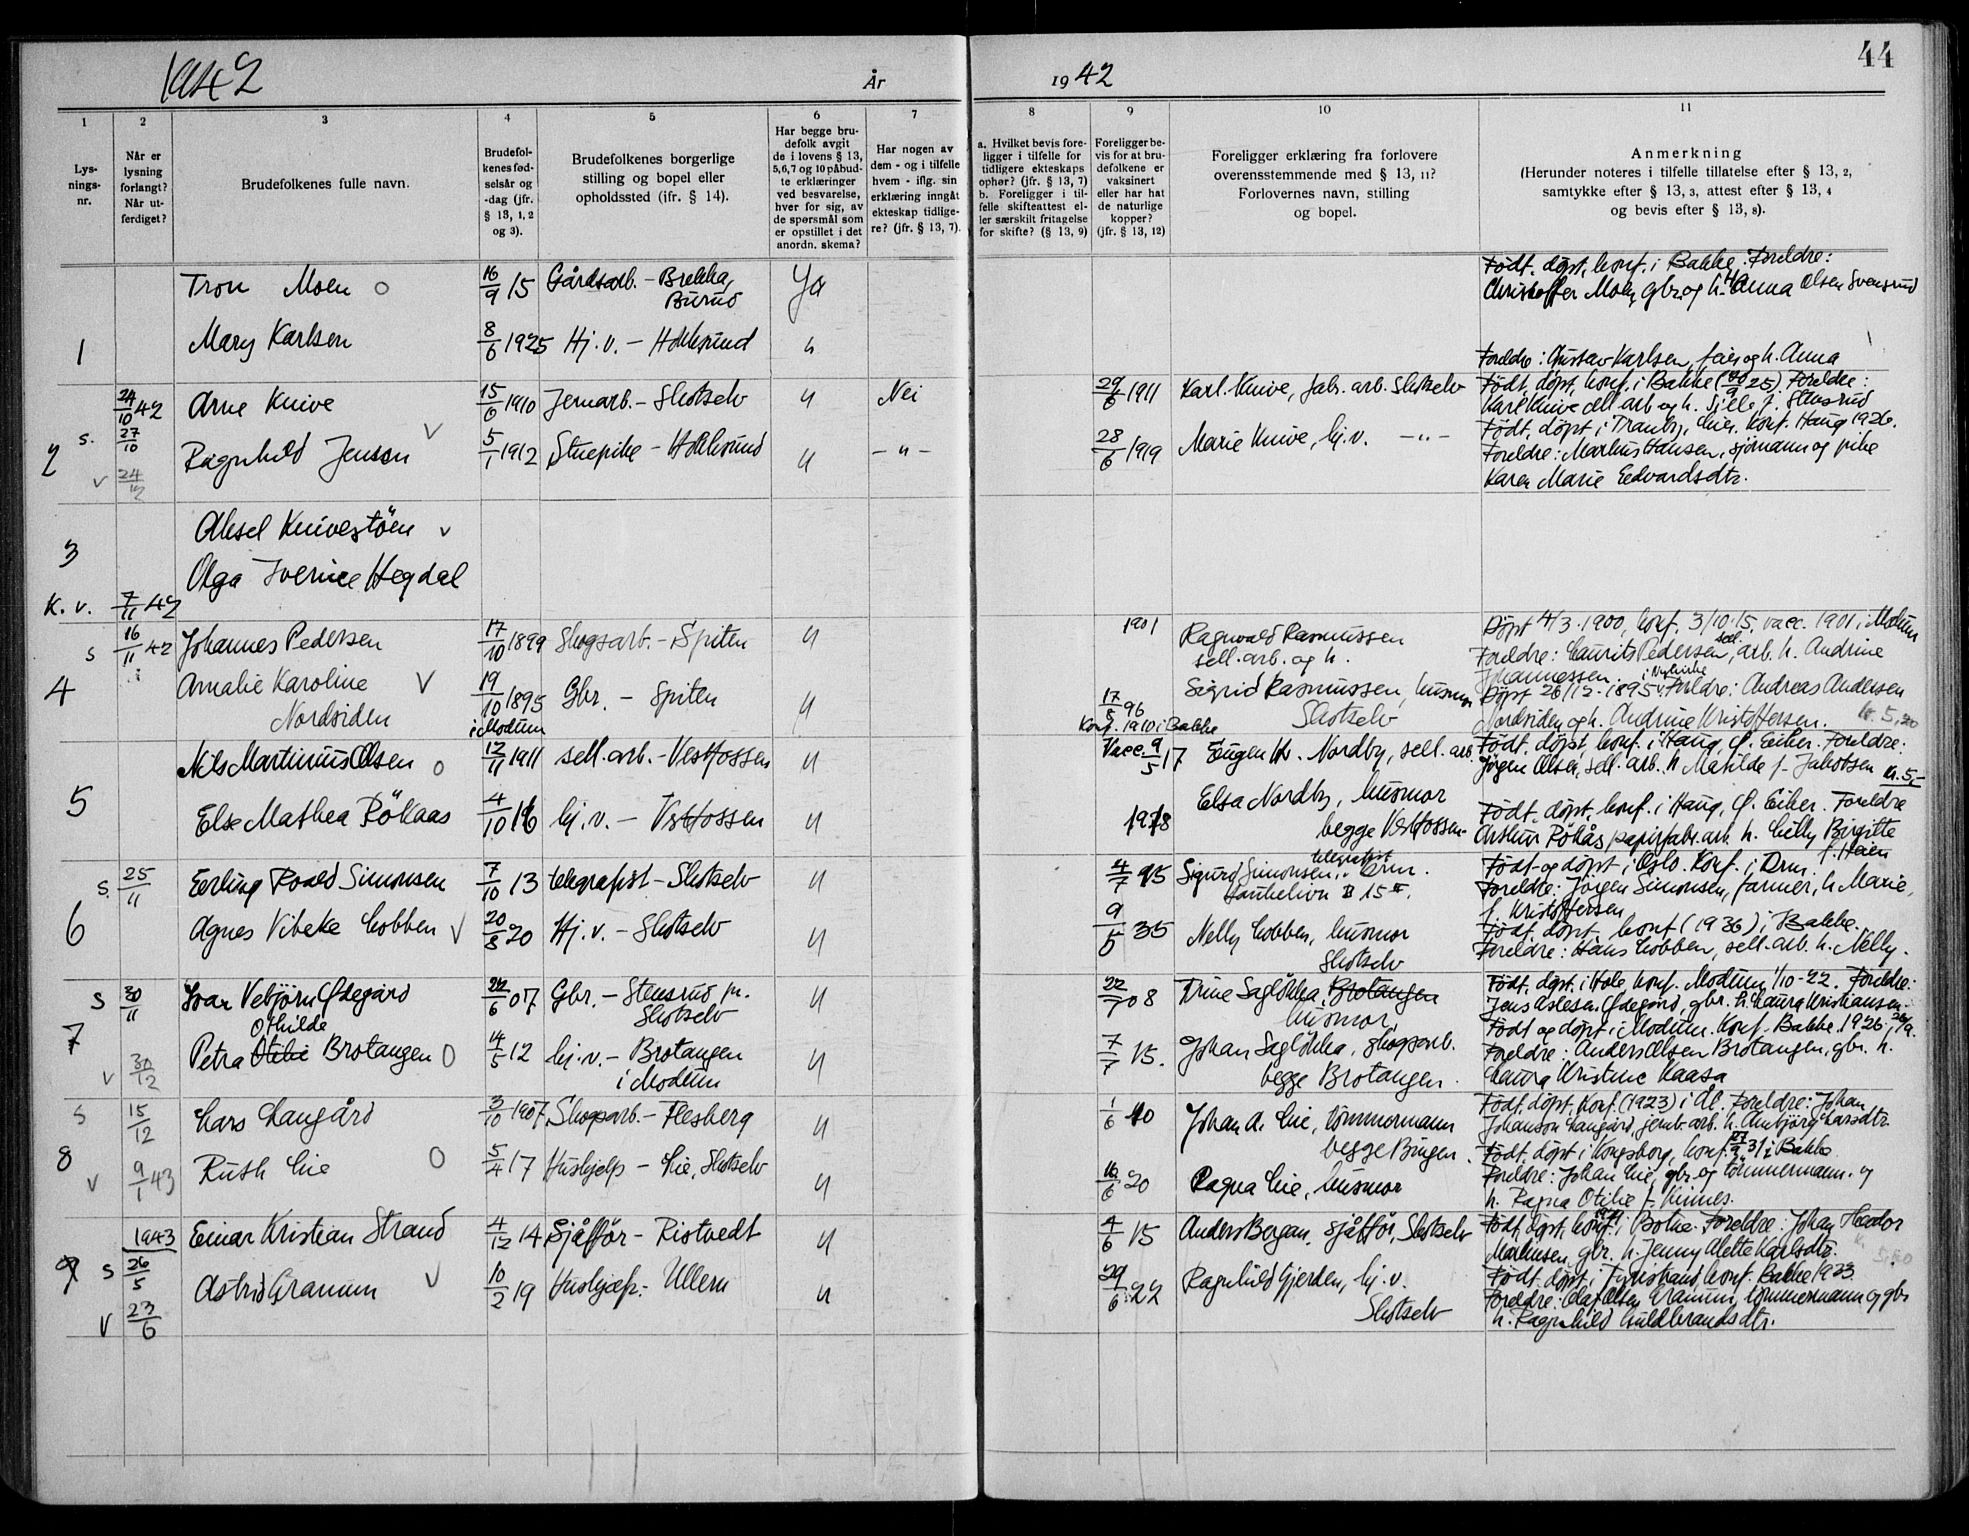 1942
År
1942
44
1
2
3
4
5
6
7
8
9
10
11
Lys-
nings-
nr.
Når er
lysning
forlangt?
Når ut-
ferdiget?
Brudefolkenes fulle navn.
Brudefol-
kenes fød-
selsår og
-dag (jfr.
§ 13, 1, 2
og 3).
Brudefolkenes borgerlige
stilling og bopel eller
opholdssted (ifr. § 14).
Har begge bru-
defolk avgit
de i lovens § 13,
5,6,7 og 10 påbud-
te erklæringer
ved besvarelse,
hver for sig, av
de spørsmål som
er opstillet i det
anordn. skema?
Har nogen av
dem - og i tilfelle
hvem - iflg. sin
erklæring inngåt
ekteskap tidlige-
re? (jfr. § 13, 7).
a. Hvilket bevis fore-
ligger i tilfelle for
tidligere ekteskaps
ophør? (jfr. § 13, 7)
b. Foreligger i til-
felle skifteattest el-
ler særskilt fritagelse
for skifte? (§ 13, 9)
Foreligger be-
vis for at bru-
defolkene er
vaksinert
eller har hat
de naturlige
kopper?
(jfr. § 13, 12)
Foreligger erklæring fra forlovere
overensstemmende med § 13, 11?
Forlovernes navn, stilling
og bopel.
Anmerkning
(Herunder noteres i tilfelle tillatelse efter § 13, 2,
samtykke efter § 13, 3, attest efter § 13, 4
og bevis efter § 13, 8).
1
Tron Moen o
16/9 15
Gårdsarb. - Brekka,
Burud
Ja
Født, døpt, konf. i Bakke. Foreldre:
Christoffer Moen gbr og h. Anna Olsen Svensrud
Mary Karlsen
8/6 1925
Hj.v. - Hokksund
"
Foreldre: Gustav Karlsen, feier og h. Anna
2
s.
24/10 42
27/10
v 24/12
Arne Knive
15/6 1910
Jernarb. - Skotselv
"
Nei
29/6 1911
Karl Knive, fabr. arb. Skotselv
Født, døpt, konf. i Bakke (20/9 25) Foreldre:
Karl Knive sell arb og h. Sille f. Stensrud
Ragnhild Jensen v
5/1 1912
Stuepike - Hokksund
"
- " -
28/6 1919
Marie Knive, hj.v. - " -
Født, døpt i Tranby, Lier. Konf. Haug 1926.
Foreldre: Markus Hansen, sjømann og pike
Karen Marie Edvardsdtr.
3
K. v. 7/11 42
Aksel Knivestöen v
Olga Iverine Hegdal
4
s 16/11 42
Johannes Pedersen
17/10 1899
Skogsarb. - Spiten
"
1901
Ragnvald Rasmussen
sell. arb. og h.
Døpt 4/3 1900, konf. 3/10 15, vacc. 1901 i Modum
Foreldre: Laurits Pedersen, sell. arb. h. Andrine
Johannessen.
Amalie Karoline v
Nordsiden
19/10 1895
i Modum
Gbr. - Spiten
"
17/8 96
Konf. 1910 i Bakke
Sigrid Rasmussen, husmor
Skotselv
Døpt 26/12 1895 i Nykirke Foreldre: Andreas Andersen
Nordsiden og h. Andrine Kristoffersen. kr. 5,20
5
Nils Martinius Olsen o
12/11 1911
sell. arb. - Vestfossen
"
Vacc. 9/5 17
Eugen Kr. Nordby, sell. arb.
Født, døpt, konf. i Haug, Ø. Eiker. Foreldre:
Jørgen Olsen, sell. arb. h Matilde f. Jakobsen kr. 5,-
Else Mathea Rökaas
4/10 16
hj.v. - Vestfossen
"
1918
Elsa Nordby, husmor
begge Vestfossen.
Født, døpt, konf. i Haug, Ø. Eiker. Foreldre
Arthur Rökås papirfabr. arb. h. Lilly Birgitte
f. Heien
6
s. 25/11
Erling Roald Simonsen
7/10 13
telegrafist - Skotselv
"
4/7 15
Sigurd Simonsen, telegrafist Drm.
Haukelivn 15
Født og døpt i Oslo. Konf. i Drm.
Foreldre: Jørgen Simonsen, farmer, h Marie,
f. Kristoffersen
Agnes Vibeke Lobben v
20/8 20
Hj.v. - Skotselv
"
9/5 35
Nelly Lobben, husmor
Skotselv
Født, døpt, konf (1936) i Bakke.
Foreldre: Hans Lobben, sell. arb. h. Nelly.
7
s 30/11
v 30/12
Ivar Vebjörn Ödegård
22/6 07
Gbr. - Stensrud, pr.
Skotselv
"
22/7 08
Trine Saglökka, Brotangen
husmor
Født, døpt i Hole konf. Modum 1/10-22. Foreldre:
Jens Aslesen Ødegård, gbr. h. Laura Kristiansen.
Othilde
Petra Otilie Brotangen o
14/5 12
hj.v. - Brotangen
i Modum
"
7/7 15.
Johan Saglökka, skogsarb.
begge Brotangen.
Født og døpt i Modum. Konf. Bakke 1926, 26/9.
Foreldre: Anders Olsen Brotangen, gbr. h.
Laura Kristine Kaasa
8
s 15/12
v 9/1 43
Lars Langård
3/10 1907
Skogsarb. - Flesberg
"
1/6 10
Johan A. Lie, tömmermann
begge Bingen.
Født, døpt, konf. (1923) i Ål. Foreldre: Johan
Johanson Langård, jernb. arb. h. Ambjörg Larsdtr.
Ruth Lie o
5/4 17
Hushjelp - Lie, Skotselv
"
16/6 20
Ragna Lie, husmor
Født, døpt i Kongsberg, konf. 27/9 31 i Bakke
Foreldre: Johan Lie, gbr og tömmermann. og
h. Ragna Otilie f. Kinnes.
9
1943
s 26/5
v 23/6
Einar Kristian Strand
4/12 14
Sjåfför - Ristvedt
"
4/6 15
Anders Bergan, sjåfför, Skotselv
Født, døpt, konf. i Botne. Foreldre: Johan Theodor
Martinsen, gbr. h. Jenny Alette Karlsdtr.
Astrid Granum v
10/2 19
Hushjelp. - Ullern
"
29/6 22
Ragnhild Gjerden, hj.v.
Skotselv
Født, døpt i Tyristrand, konf. Bakke 1933
Foreldre: Olaf Olsen Granum, tömmermann og gbr
h. Ragnhild Guldbrandsdtr.